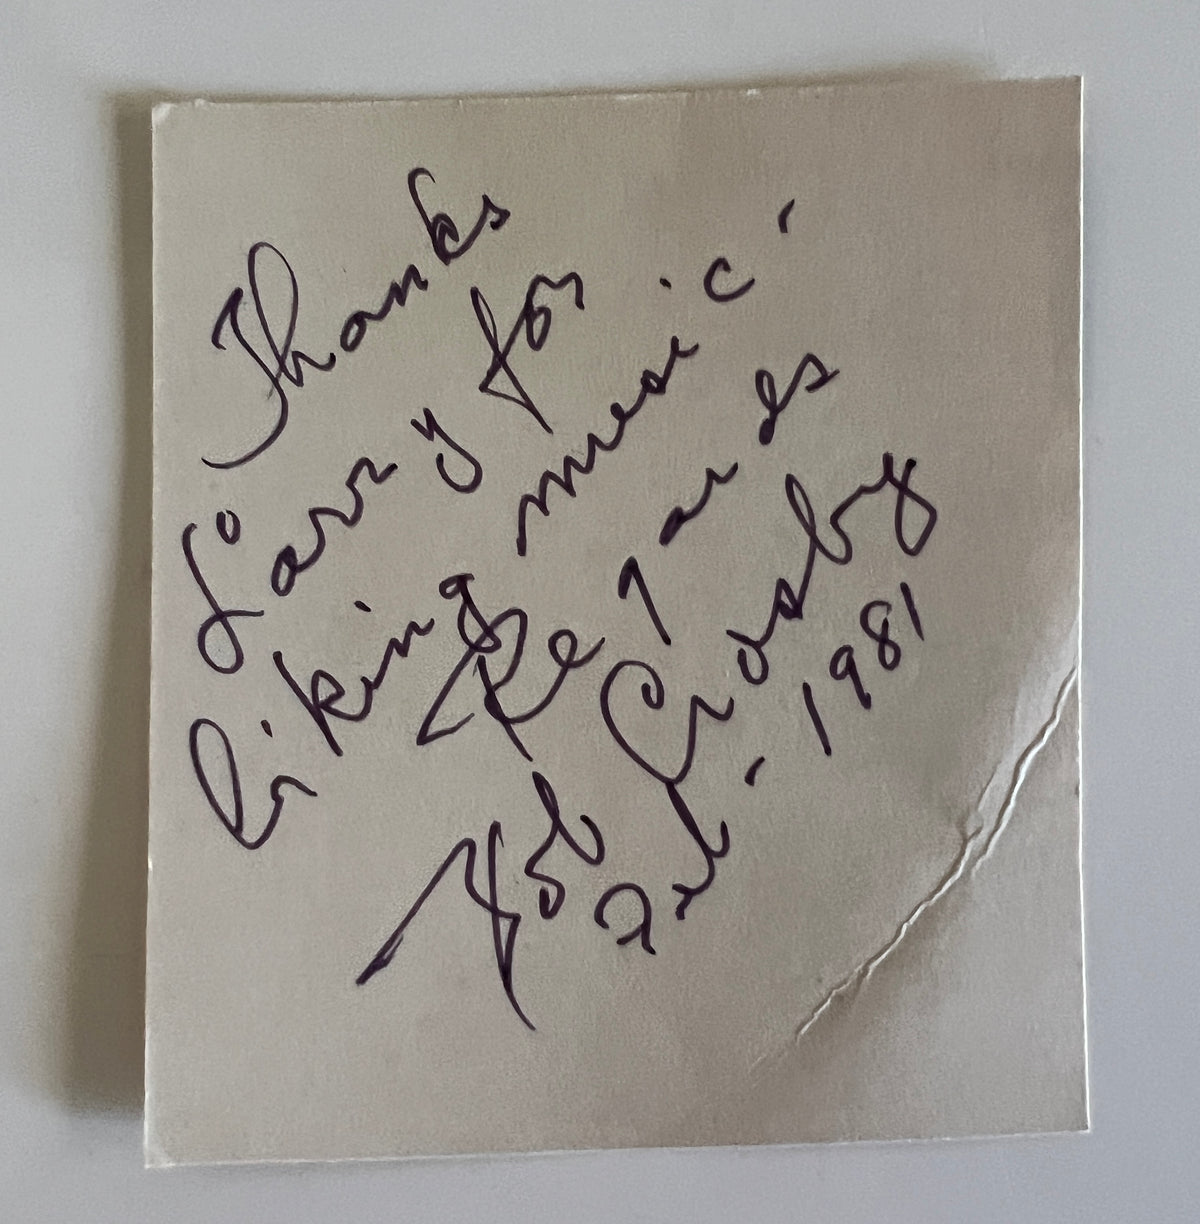 Thanks
Larry for
liking music -
Regards
Bob Crosby
Feb - 1981